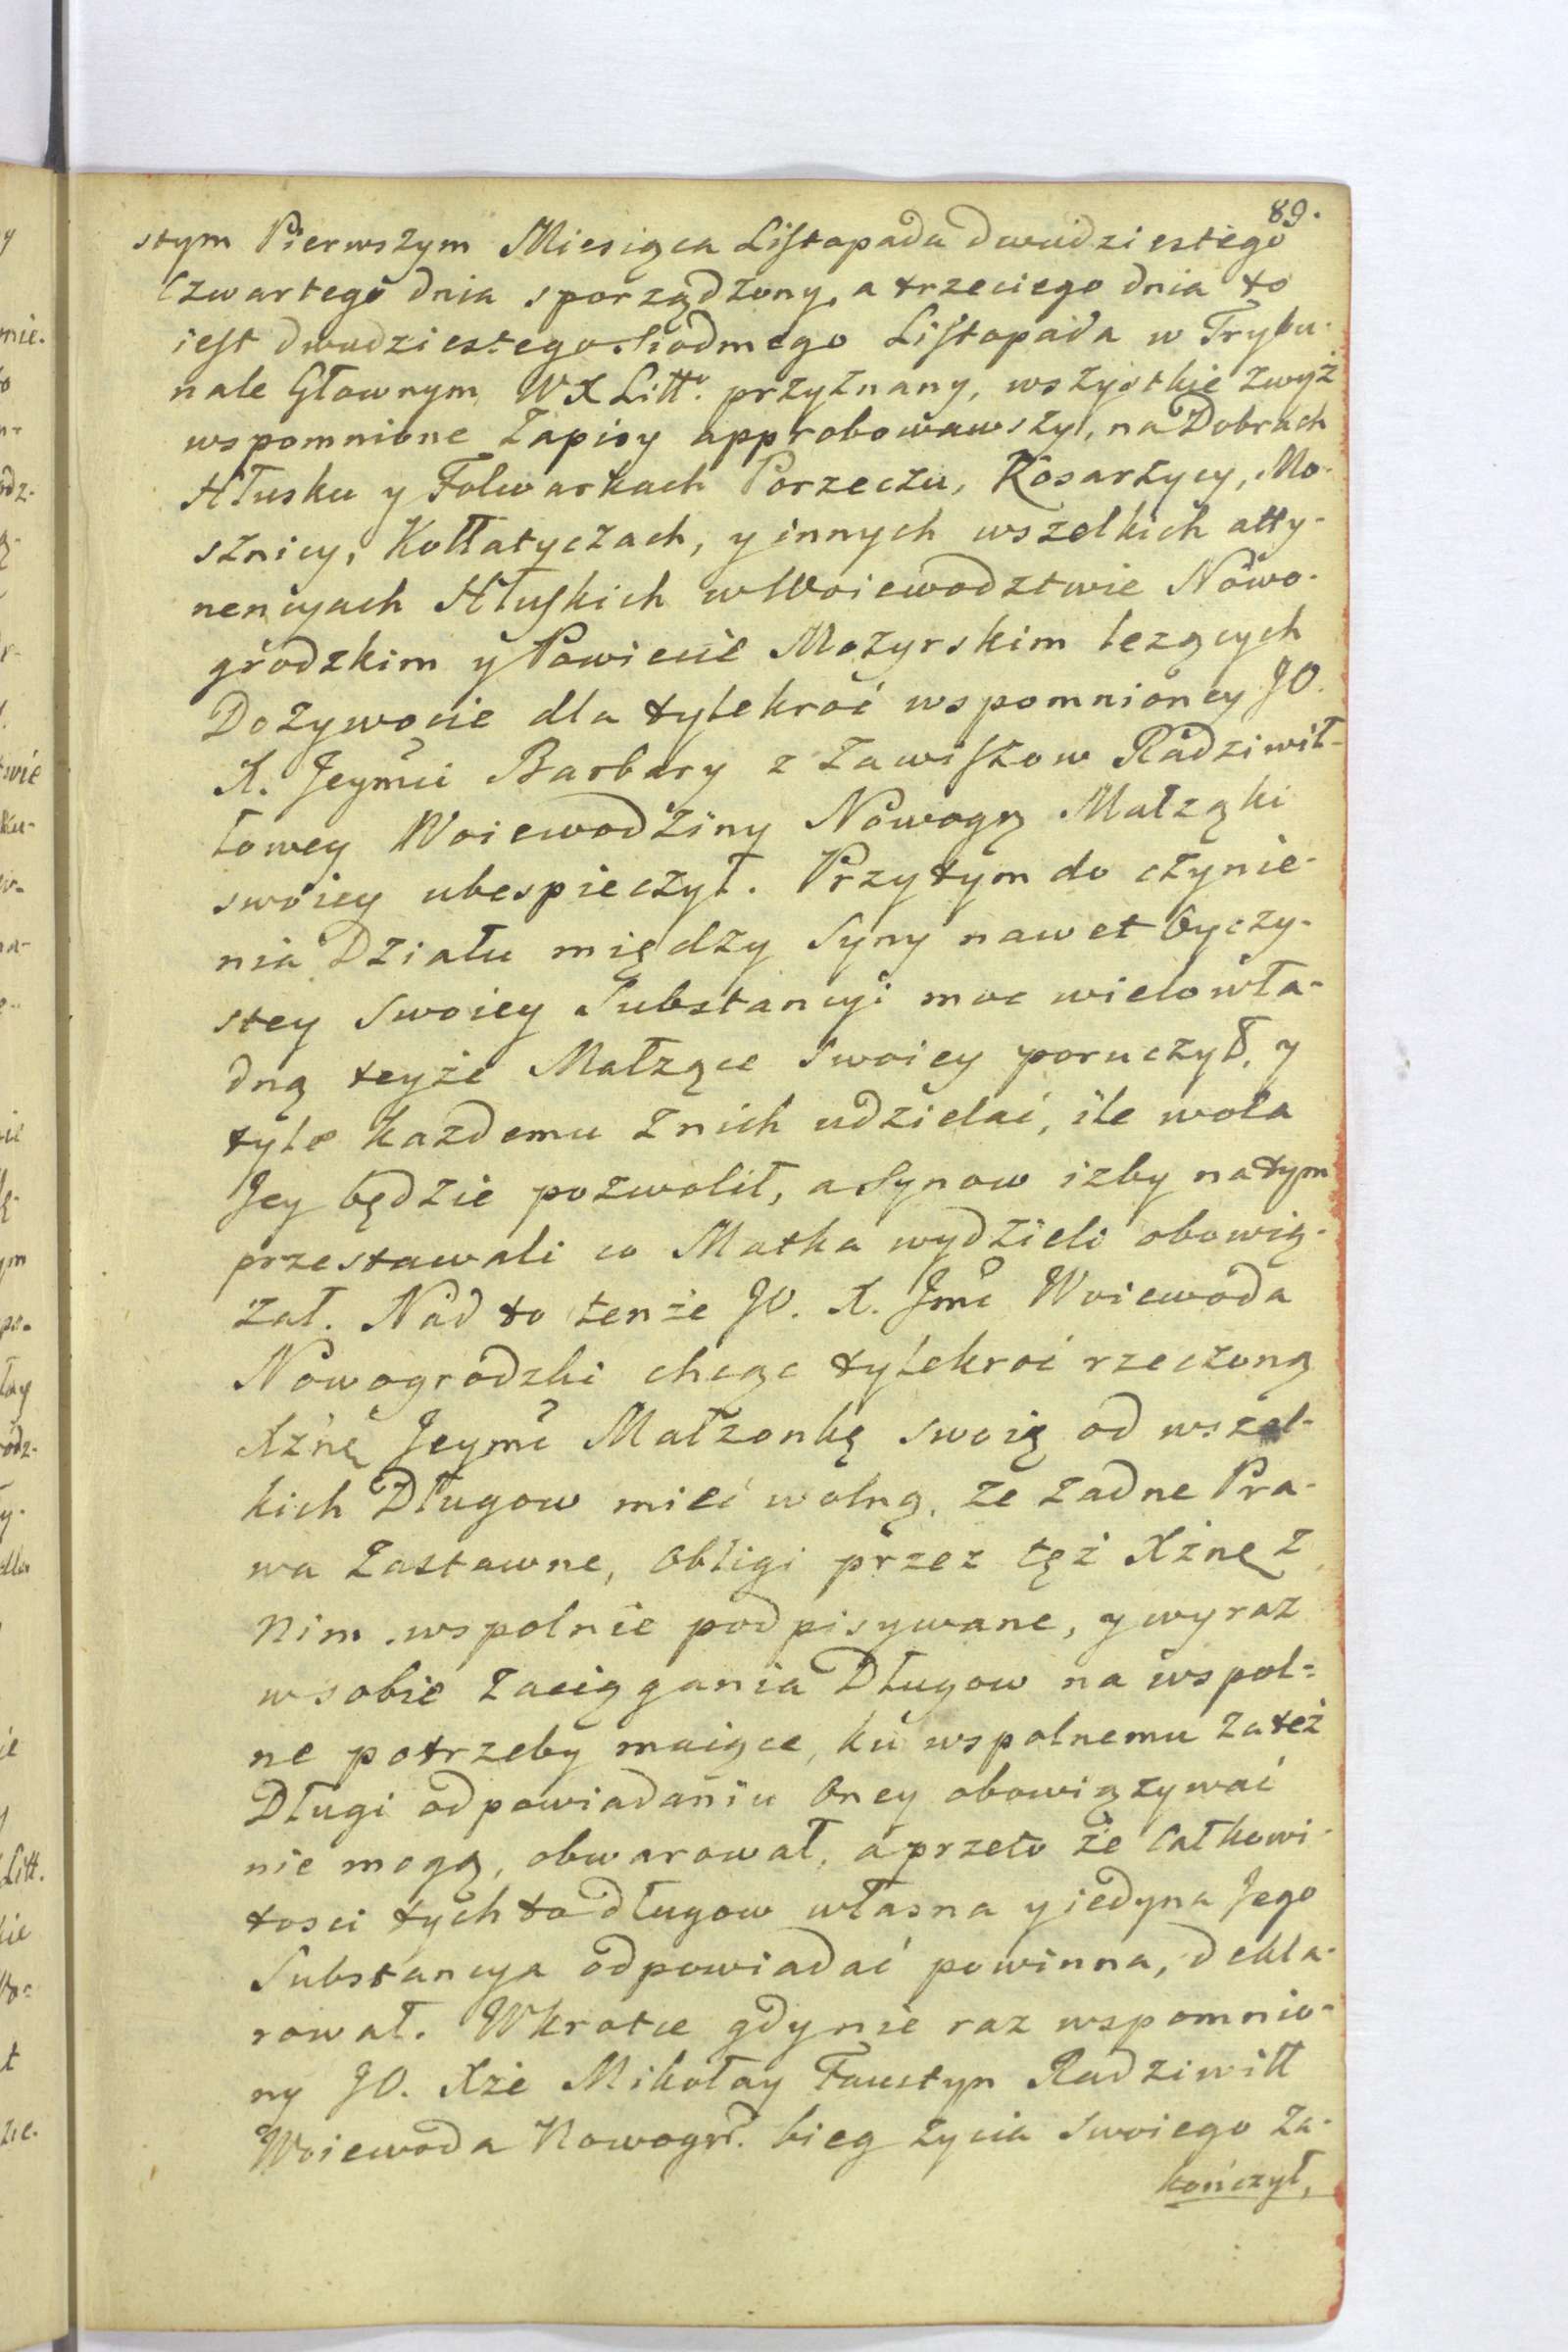 89.
stym Pierwszym Miesiąca Listopada dwudziestego
Czwartego dnia sporządzony, a trzeciego dnia to
iest dwudziestego siodmego Listopada w Trybu-
nale Głownym W X Litt: przyznany, wszystkie zwyż
wspomnione Zapisy approbowawszy, na Dobrach
Hłusku y Folwarkach Porzeczu, Kosarzycy, Mo-
sznicy, Kołłatyczach, y innych wszelkich atty-
nencyach Hłuskich w Woiewodztwie Nowo-
grodzkim y Powiecie Mozyrskim lezących
Dozywocie dla tylekroć wspomnioney JO.
X. Jeymci Barbary z Zawiszow Radziwił-
łowey Woiewodziny Nowogr Małząki
swoiey ubespieczył. Przytym do czynie-
nia Działu między Syny nawet Oyczy-
stey Swoiey Substancyi moc wielowła-
dną teyże Małzące Swoiey poruczył, y
tyle każdemu z nich udzielać, ile wola
Jey będzie pozwolił, a Synow izby na tym
przestawali co Matka wydzieli obowią-
zał. Nad to tenże JO. X. Jmć Woiewoda
Nowogrodzki chcąc tylekroć rzeczoną
Xżnę Jeymć Małzonkę swoię od wszel-
kich Długow mieć wolną, że żadne Pra-
wa Zastawne, Obligi przez tęż Xżnę z
Nim wspolnie podpisywane, y wyraz
w sobie Zaciągania Długow na wspol-
ne potrzeby maiące, ku wspolnemu za też
Długi odpowiadaniu Oney obowiązywać
nie mogą, obwarował, a przeto że Całkowi-
tosci tych to długow własna y iedyna Jego
Substancya odpowiadać powinna, dekla-
rował. Wkrotce gdy nie raz wspomnio-
ny JO. Xże Mikołay Faustyn Radziwiłł
Woiewoda Nowogr. bieg życia Swoiego Za-
kończył,